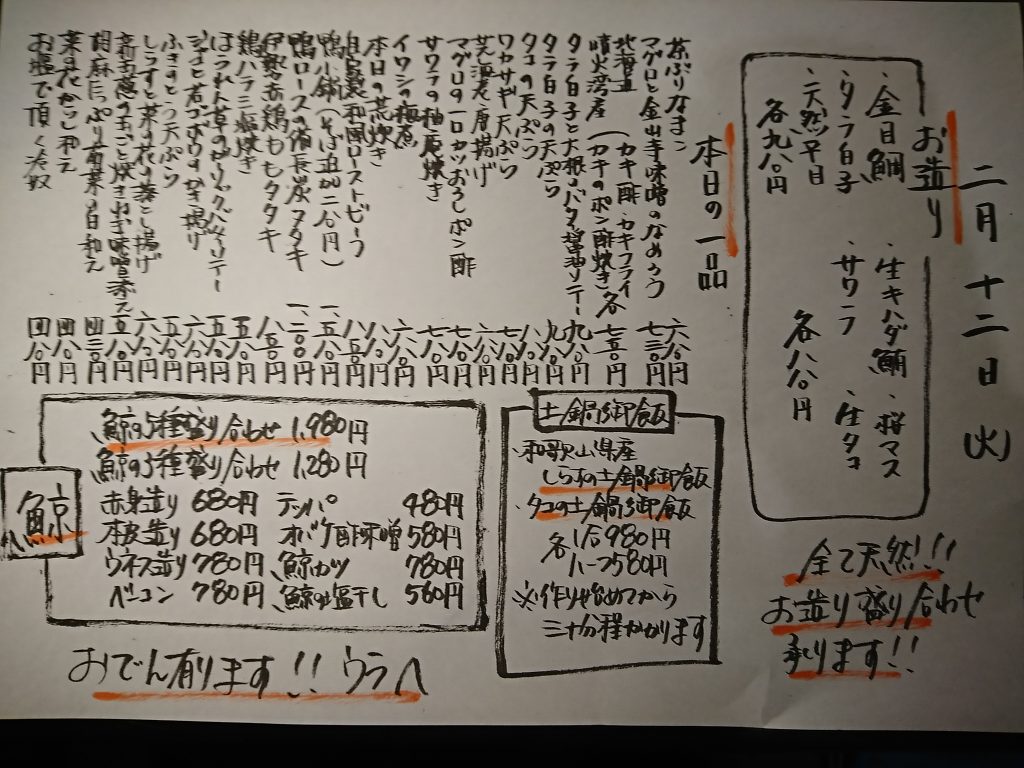 二月十二日(火)
お造り
・金目鯛 ・生キハダ鮪 ・桜マス
・タラ白子 ・サワラ ・生タコ
・天然平目
各九八〇円 各八八〇円
全て天然!!
お造り盛り合わせ
承ります!!
本日の一品
茶ぶりなまこ 六八〇円
マグロと金山寺味噌のなめろう 七三〇円
北海道 (カキ酢・カキフライ
噴火湾産 (カキのポン酢炊き)各 七五〇円
タラ白子と大根のバタ醤油ソテー 九八〇円
タラ白子の天ぷら 九八〇円
タコの天ぷら 七八〇円
ワカサギ天ぷら 六八〇円
芝海老唐揚げ 七八〇円
マグロの一口カツおろしポン酢 七八〇円
サワラの柚庵焼き 七八〇円
イワシの梅煮 六八〇円
本日の荒炊き 八八〇円
自家製和風ローストビーフ 八八〇円
鴨小鍋(そば追加二八〇円) 一、五八〇円
鴨ロースの備長炭タタキ 一、二〇〇円
伊勢赤鶏ももタタキ 八五〇円
鶏ハラミ塩焼き 五八〇円
ほうれん草のガーリックバターソテー 五八〇円
ジャコと若ゴボウのかき揚げ 六八〇円
ふきのとう天ぷら 五八〇円
しらすと菜の花の落とし揚げ 六八〇円
新玉葱の丸ごと炊きねぎ味噌添え 五五〇円
胡麻たっぷり菊菜の白和え 四三〇円
菜の花からし和え 四八〇円
お塩で頂く冷奴 四八〇円
土鍋御飯
・和歌山県産
しらすの土鍋御飯
・タコの土鍋御飯
各 1合980円
ハーフ580円
※作り始めてから
三十分程かかります
鯨
鯨の5種盛り合わせ 1,980円
鯨の3種盛り合わせ 1,280円
赤身造り 680円 テッパ 480円
本皮造り 680円 オバケ酢味噌 580円
ウネス造り 780円 鯨カツ 780円
ベーコン 780円 鯨の塩干し 560円
おでん有ります!! ウラへ